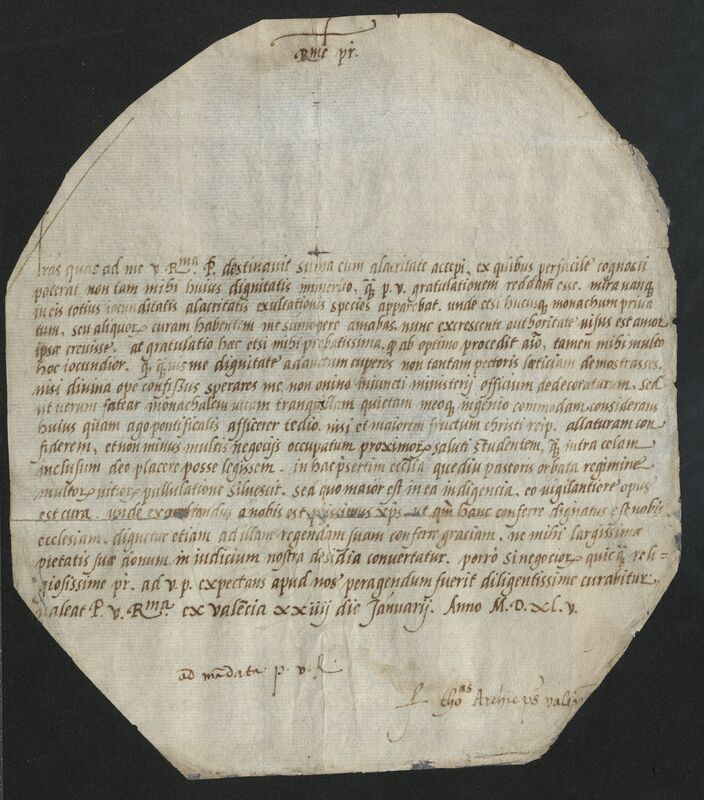 Rme pr.
lras quas ad me v. Rma. P. destinavit suma cum alacritate accepi, ex quibus perfacile cognosci
poterat non tam mihi huius dignitatis minierio, qz p. v. gratulationem reddam esse. mira nanqz
in eis totius iocunditatis alacritatis exultationis species apparebat. unde etsi hucusqz monachum priva
tum, seu aliquor curam habentem me sumopere amabas nunc excrescente authoritate visus est amor
ipse crevisse. at gratulatio haec etsi mihi probatissima, qd ab optimo procedit aio, tamen mihi multo
hoc iocundior. qz quis me dignitate adauctum cuperes non tantam pectoris laeticiam demostrasses,
nisi divina ope confissus sperares me non onino iniuncti ministerij officium dedecoraturum. sed
ut verum fatear monachalem vitam tranquillam quietam meoqz ingenio commodam considerans
huius quam ago pontificalis afficerer tedio. nisi et maiorem fructum christi reip. allaturam con
fiderem, et non minus multis negocijs occupatum proximor saluti studentem, qz intra celam
inclusum deo placere posse legissem. in hac psertim ecclia que diu pastoris orbata regimine
multor vitior pullulatione silvescit. sed quo maior est in ea indigencia, eo vigilantiore opus
est cura. unde exorandus a nobis est piissimus xps ut qui hanc conferre dignatus est nobis
ecclesiam, dignetur etiam ad illam regendam suam conferre graciam, ne mihi largissime
pietatis suae donum in iudicium nostra desidia convertatur. porro si negocior quicqz reli=
giosissime pr. ad v. p. expectans apud nos peragendum fuerit diligentissime curabitur
valeat P. v. Rma. ex valecia xxiiij die Januarij. Anno M. D. xl. v.
ad madata p. v. R.
thoas Archieps valen